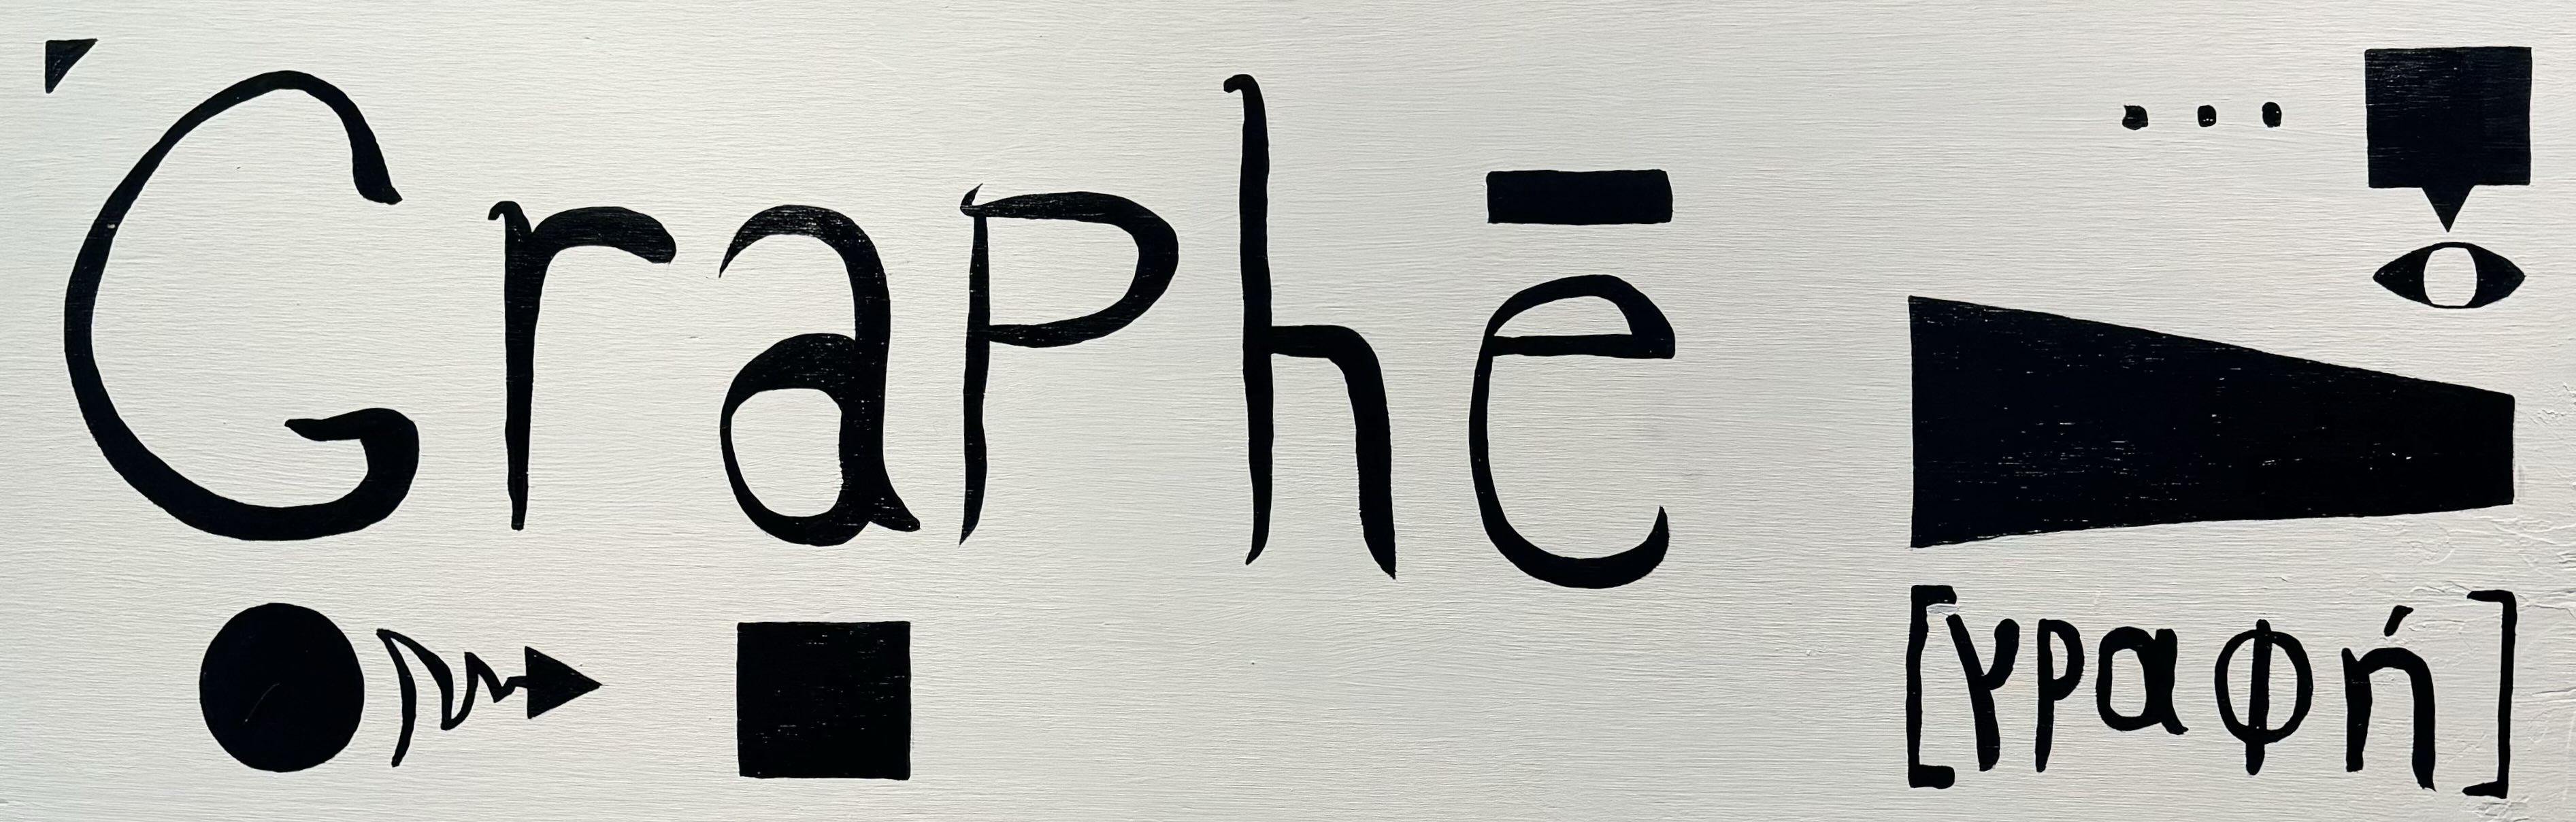 Graphē
[γραφή]